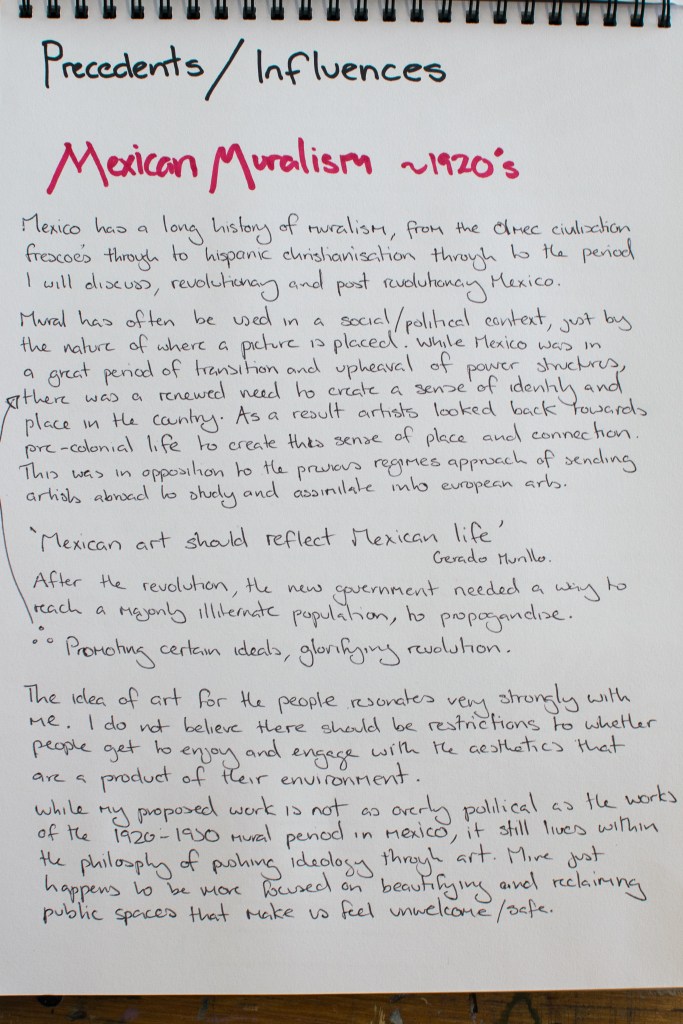 Precedents / Influences
Mexican Muralism ~1920's
Mexico has a long history of muralism, from the Olmec civilisation
frescoe's through to hispanic christianisation through to the period
I will discuss, revolutionary and post revolutionary Mexico.
Mural has often be used in a social/political context, just by
the nature of where a picture is placed. While Mexico was in
a great period of transition and upheaval of power structures,
there was a renewed need to create a sense of identity and
place in the country. As a result artists looked back towards
pre-colonial life to create this sense of place and connection.
This was in opposition to the previous regimes approach of sending
artists abroad to study and assimilate into european arts.
'Mexican art should reflect Mexican life'
Gerado Murillo.
After the revolution, the new government needed a way to
reach a majorly illiternate population, to propogandise.
∴ Promoting certain ideals, glorifying revolution.
The idea of art for the people resonates very strongly with
me. I do not believe there should be restrictions to whether
people get to enjoy and engage with the aesthetics that
are a product of their environment.
While my proposed work is not as overly political as the works
of the 1920-1950 mural period in Mexico, it still lives within
the philosophy of pushing ideology through art. Mine just
happens to be more focused on beautifying and reclaiming
public spaces that make us feel unwelcome/safe.